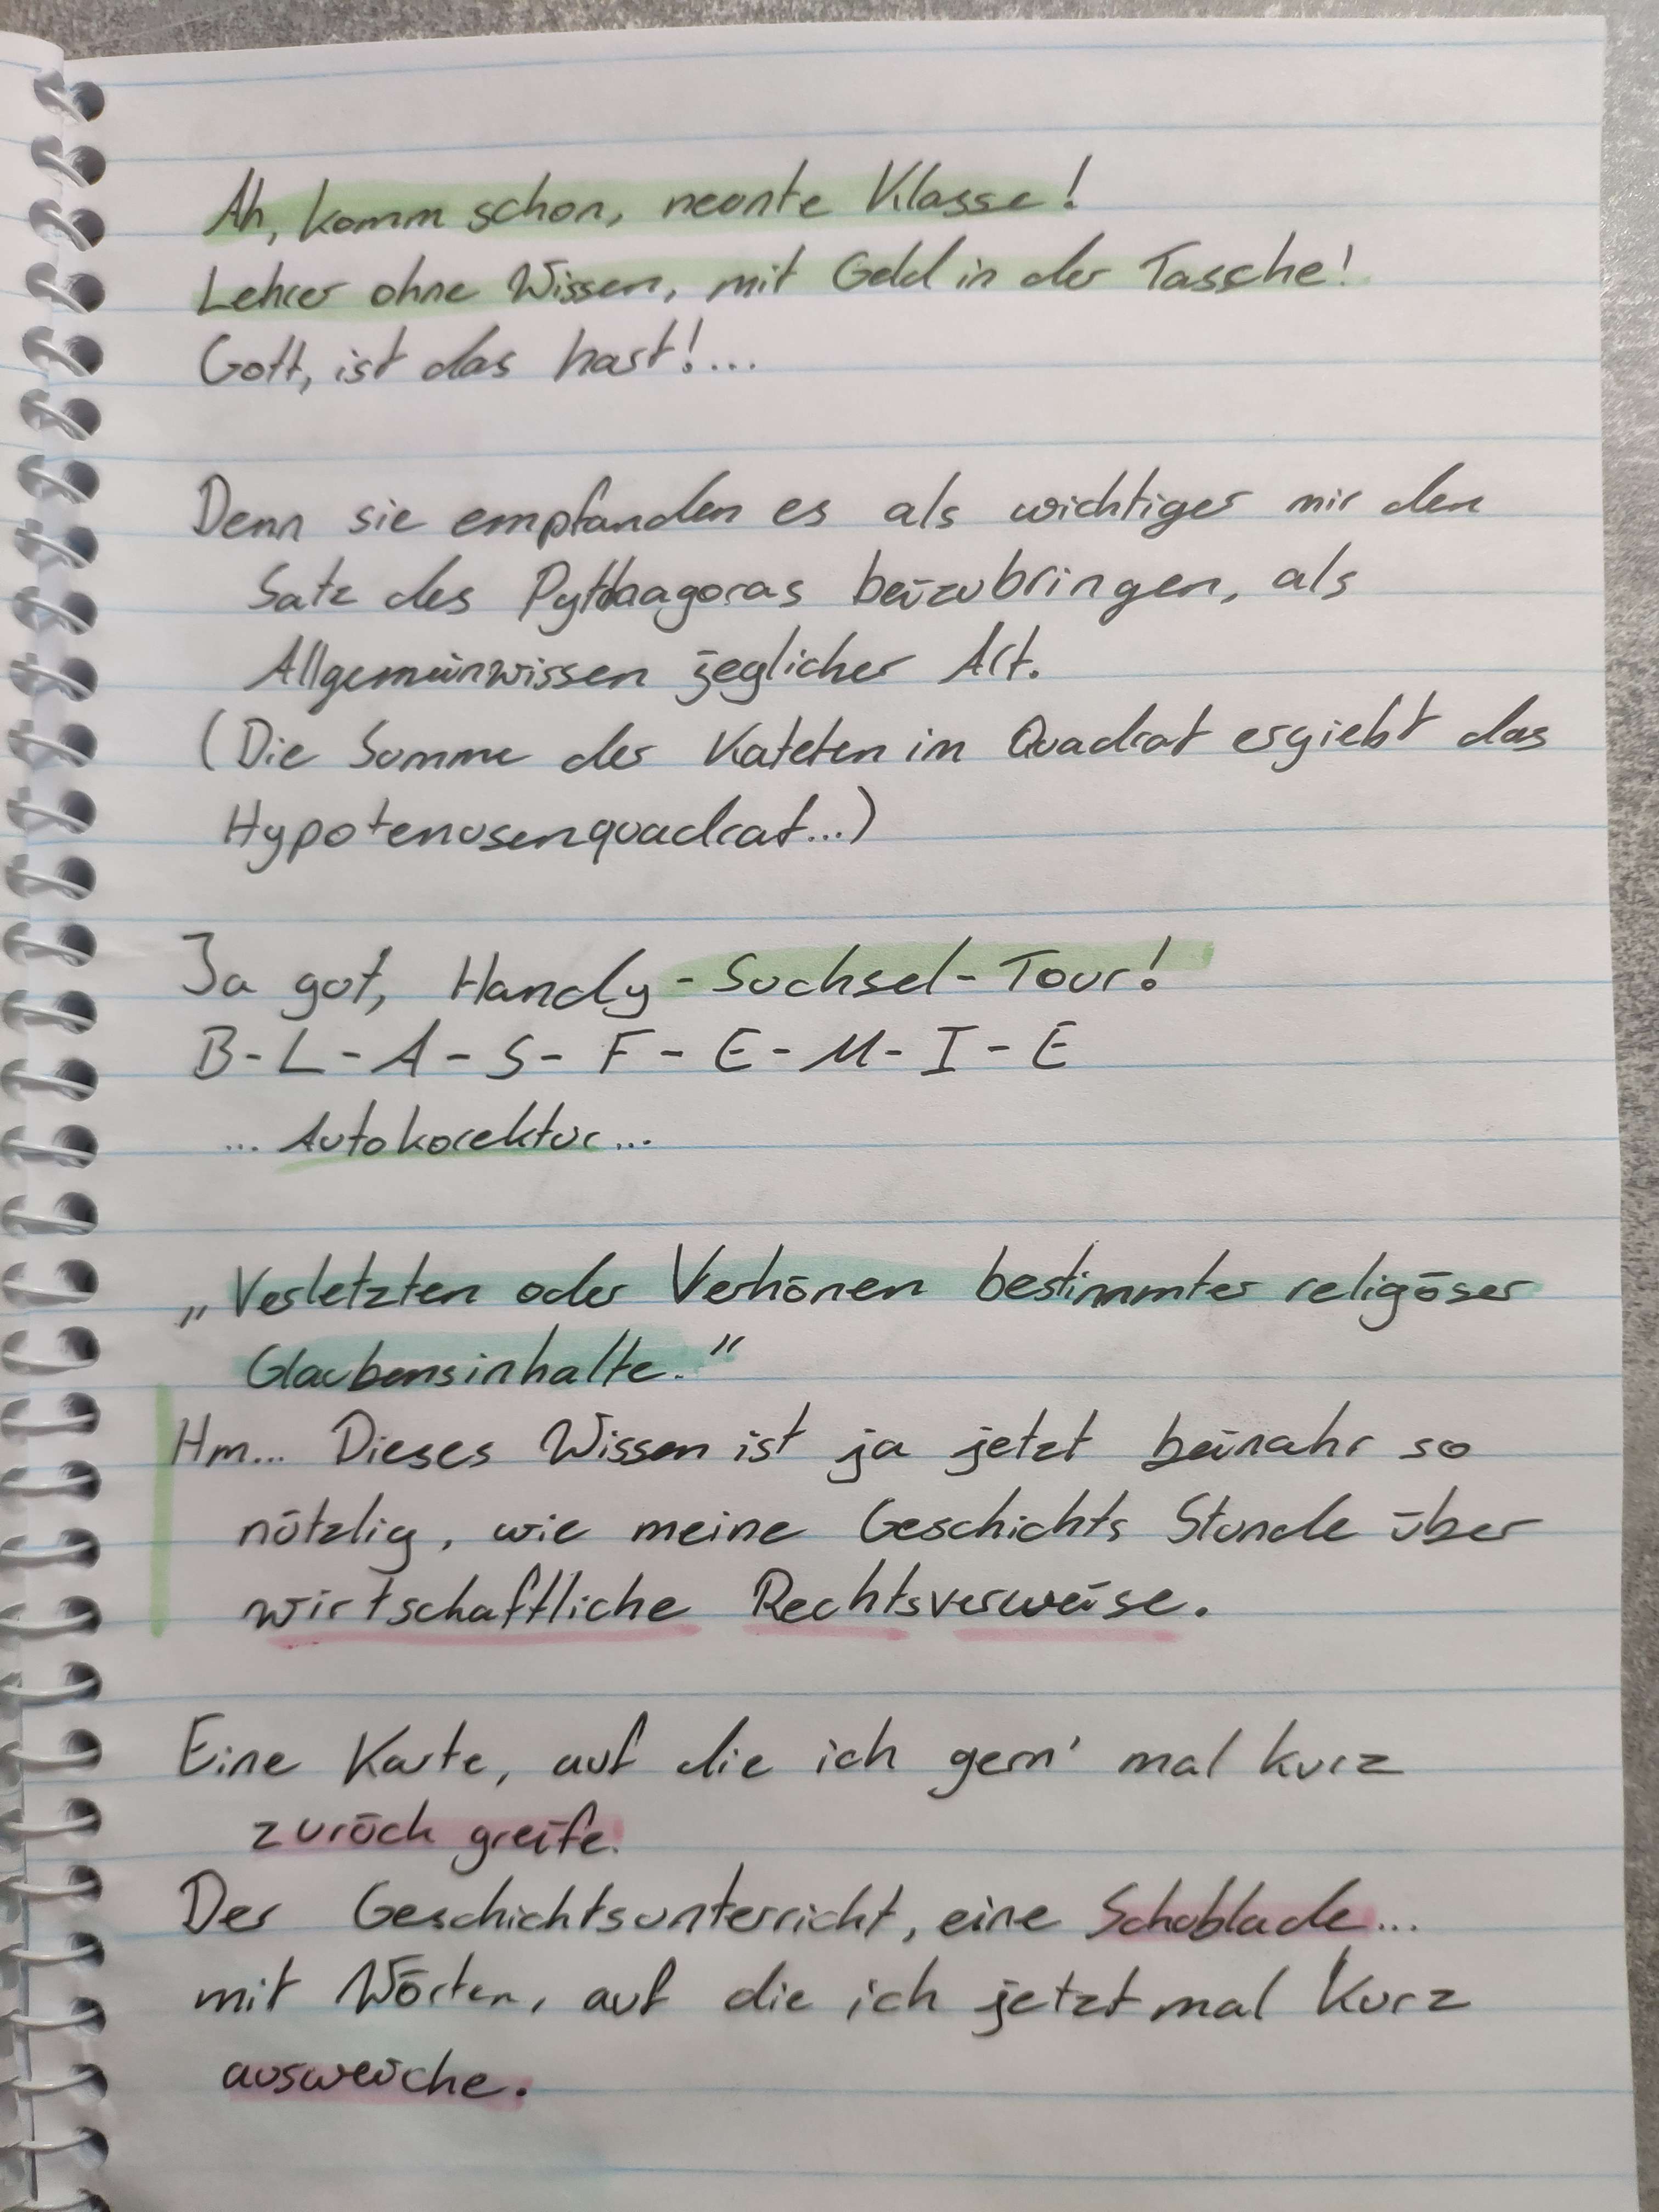 Ah, komm schon, neunte Klasse!
Lehrer ohne Wissen, mit Geld in der Tasche!
Gott, ist das hart!...
Denn sie empfanden es als wichtiger mir den
Satz des Pythaagoras beizubringen, als
Allgemeinwissen jeglicher Art.
(Die Summe der Kateten im Quadrat ergiebt das
Hypotenusenquadrat...)
Ja gut, Handy-Suchsel-Tour!
B-L-A-S-F-E-M-I-E
... Autokorektur...
„Verletzten oder Verhönen bestimmter religöser
Glaubensinhalte."
Hm... Dieses Wissen ist ja jetzt beinahr so
nützlig, wie meine Geschichts Stunde über
wirtschaftliche Rechtsverweise.
Eine Karte, auf die ich gern' mal kurz
zurück greife.
Der Geschichtsunterricht, eine Schublade...
mit Wörten, auf die ich jetzt mal kurz
ausweiche.